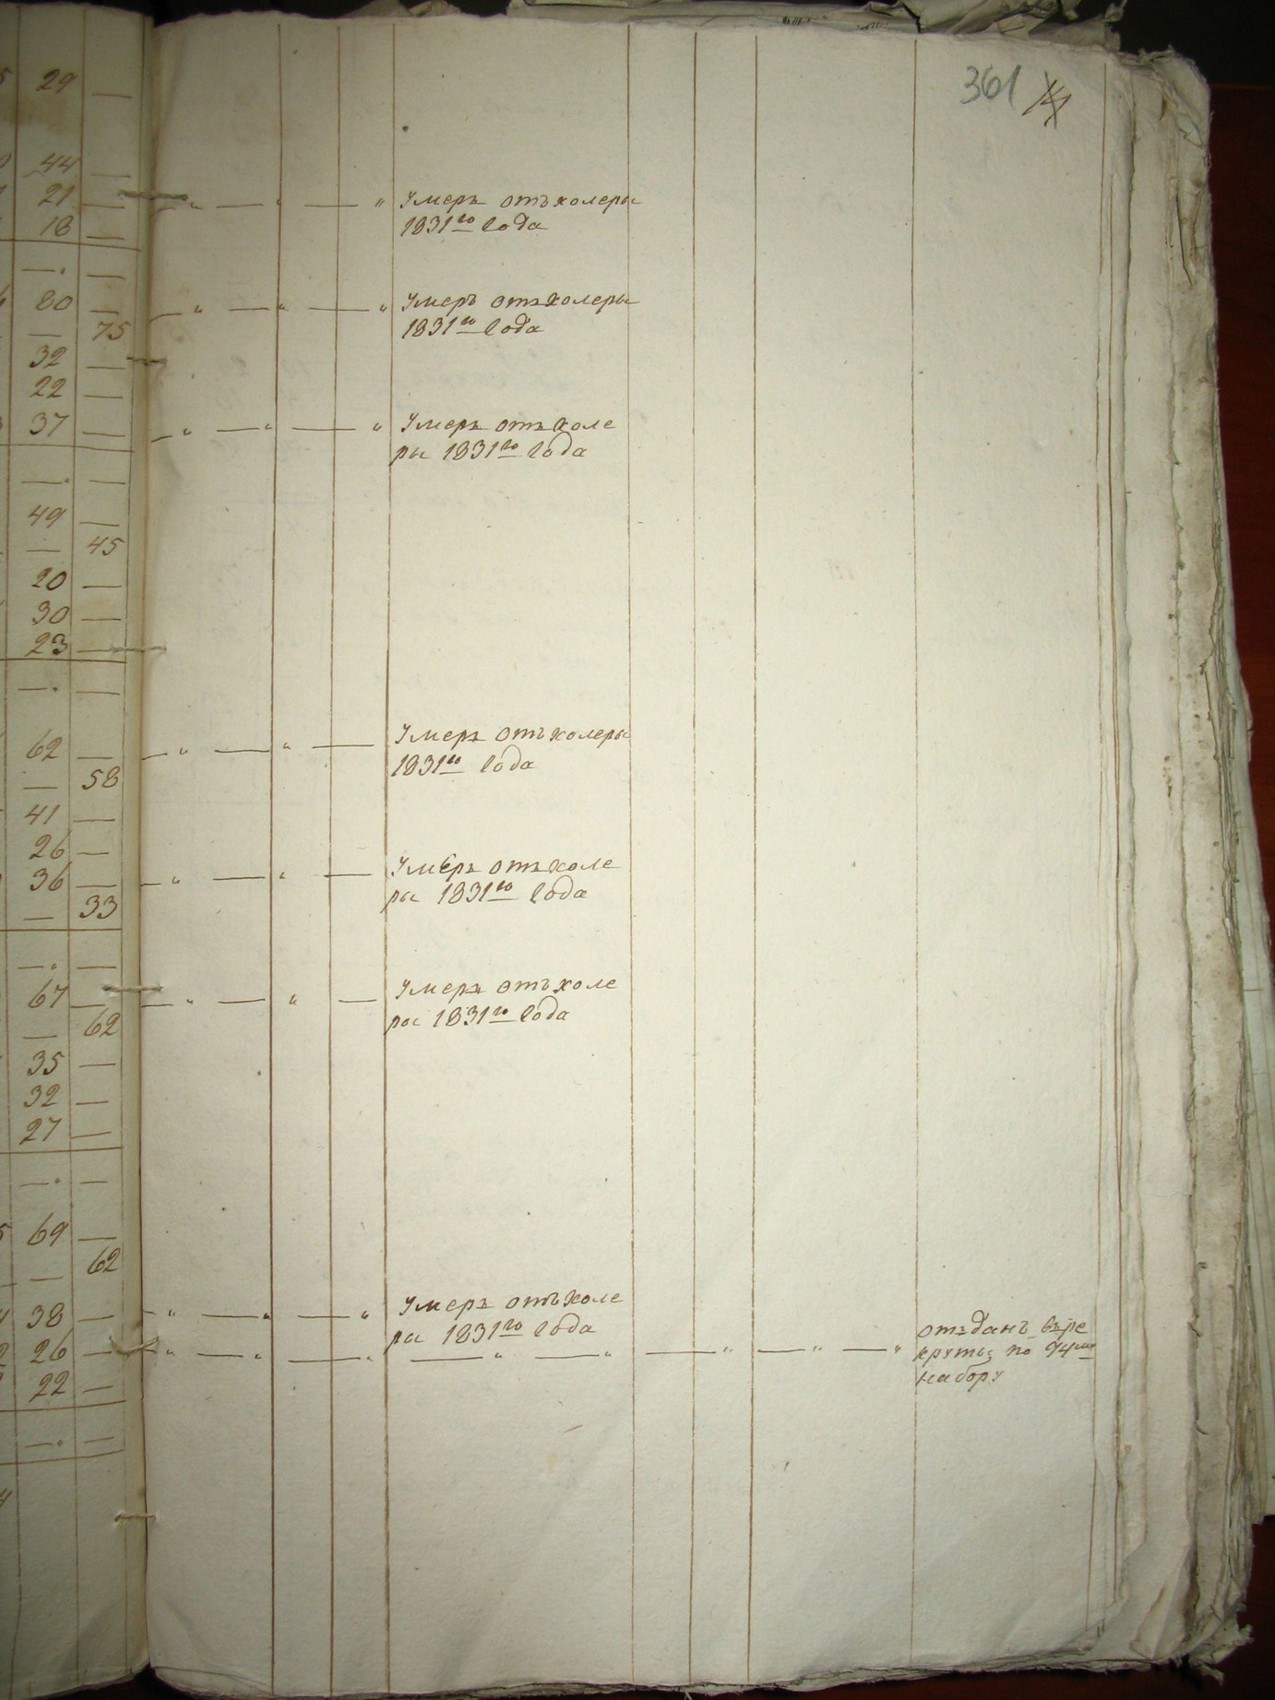 361
29
44
21
18
Умеръ отъ холеры
1831го года
80
75
Умеръ отъ холеры
1831го года
32
22
37
Умеръ отъ холе
ры 1831го года
49
45
20
30
23
62
58
Умеръ отъ холеры
1831го года
41
26
36
33
Умеръ отъ холе
ры 1831го года
67
62
Умеръ отъ холе
ры 1831го года
35
32
27
69
62
38
Умеръ отъ холе
ры 1831го года
26
отъданъ въ ре
круты по 94му
набору
22